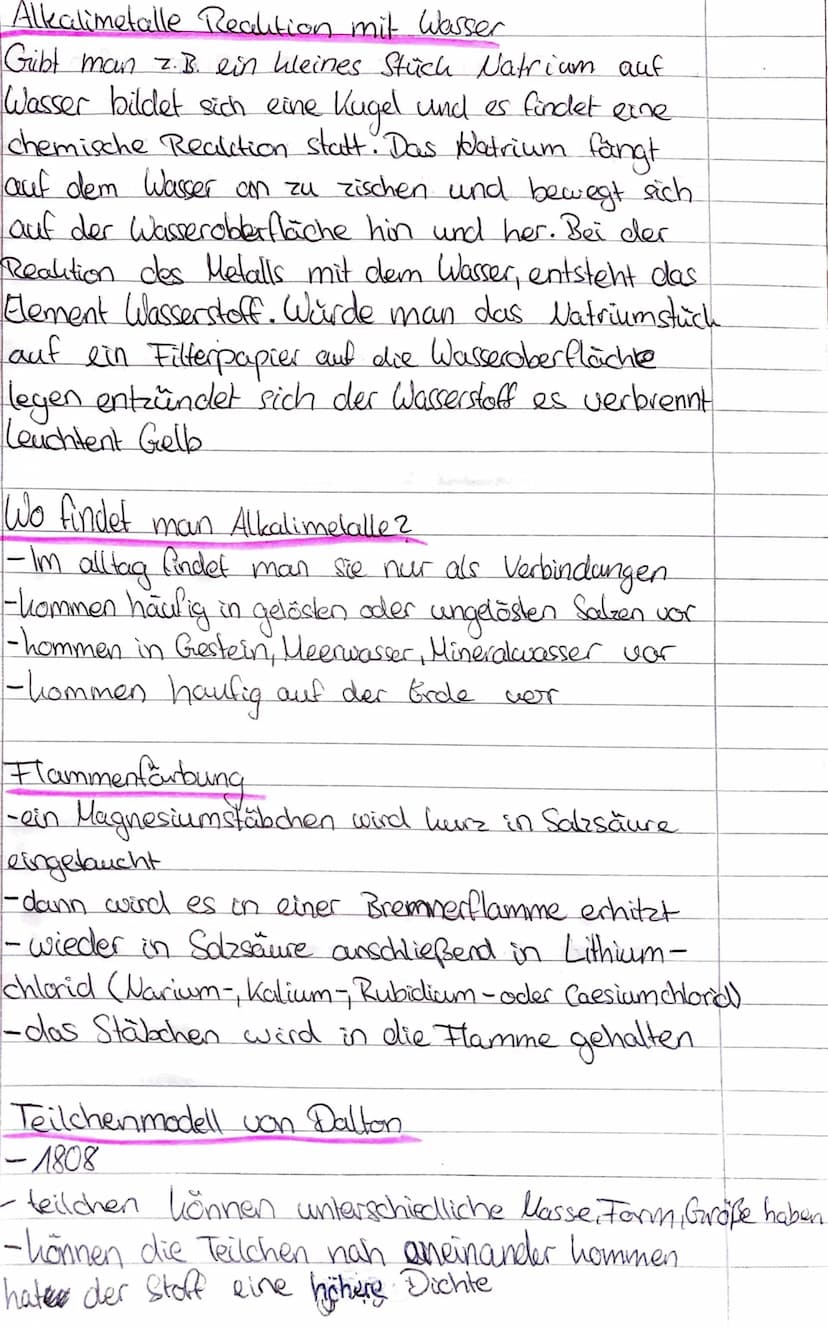 Alkalimetalle Reaktion mit Wasser
Gibt man z.B. ein kleines Stück Natrium auf
Wasser bildet sich eine Kugel und es findet eine
chemische Reaktion statt. Das Natrium fängt
auf dem Wasser an zu zischen und bewegt sich
auf der Wasseroberfläche hin und her. Bei der
Reaktion des Metalls mit dem Wasser, entsteht das
Element Wasserstoff. Würde man das Natriumstück
auf ein Filterpapier auf die Wasseroberfläche
legen entzündet sich der Wasserstoff es verbrennt
Leuchtent Gelb
Wo findet man Alkalimetalle?
- Im alltag findet man sie nur als Verbindungen
- kommen häufig in gelösten oder ungelösten Salzen vor
- kommen in Gestein, Meerwasser, Mineralwasser vor
- kommen haufig auf der Erde vor
Flammenfärbung
- ein Magnesiumstäbchen wird kurz in Salzsäure
eingetaucht
- dann wird es in einer Brennerflamme erhitzt
- wieder in Salzsäure anschließend in Lithium-
chlorid (Narium-, Kalium-, Rubidium- oder Caesiumchlorid)
- das Stäbchen wird in die Flamme gehalten
Teilchenmodell von Dalton
- 1808
- teilchen können unterschiedliche Masse, Form, Größe haben
- können die Teilchen nah aneinander kommen
hat der Stoff eine höhere Dichte